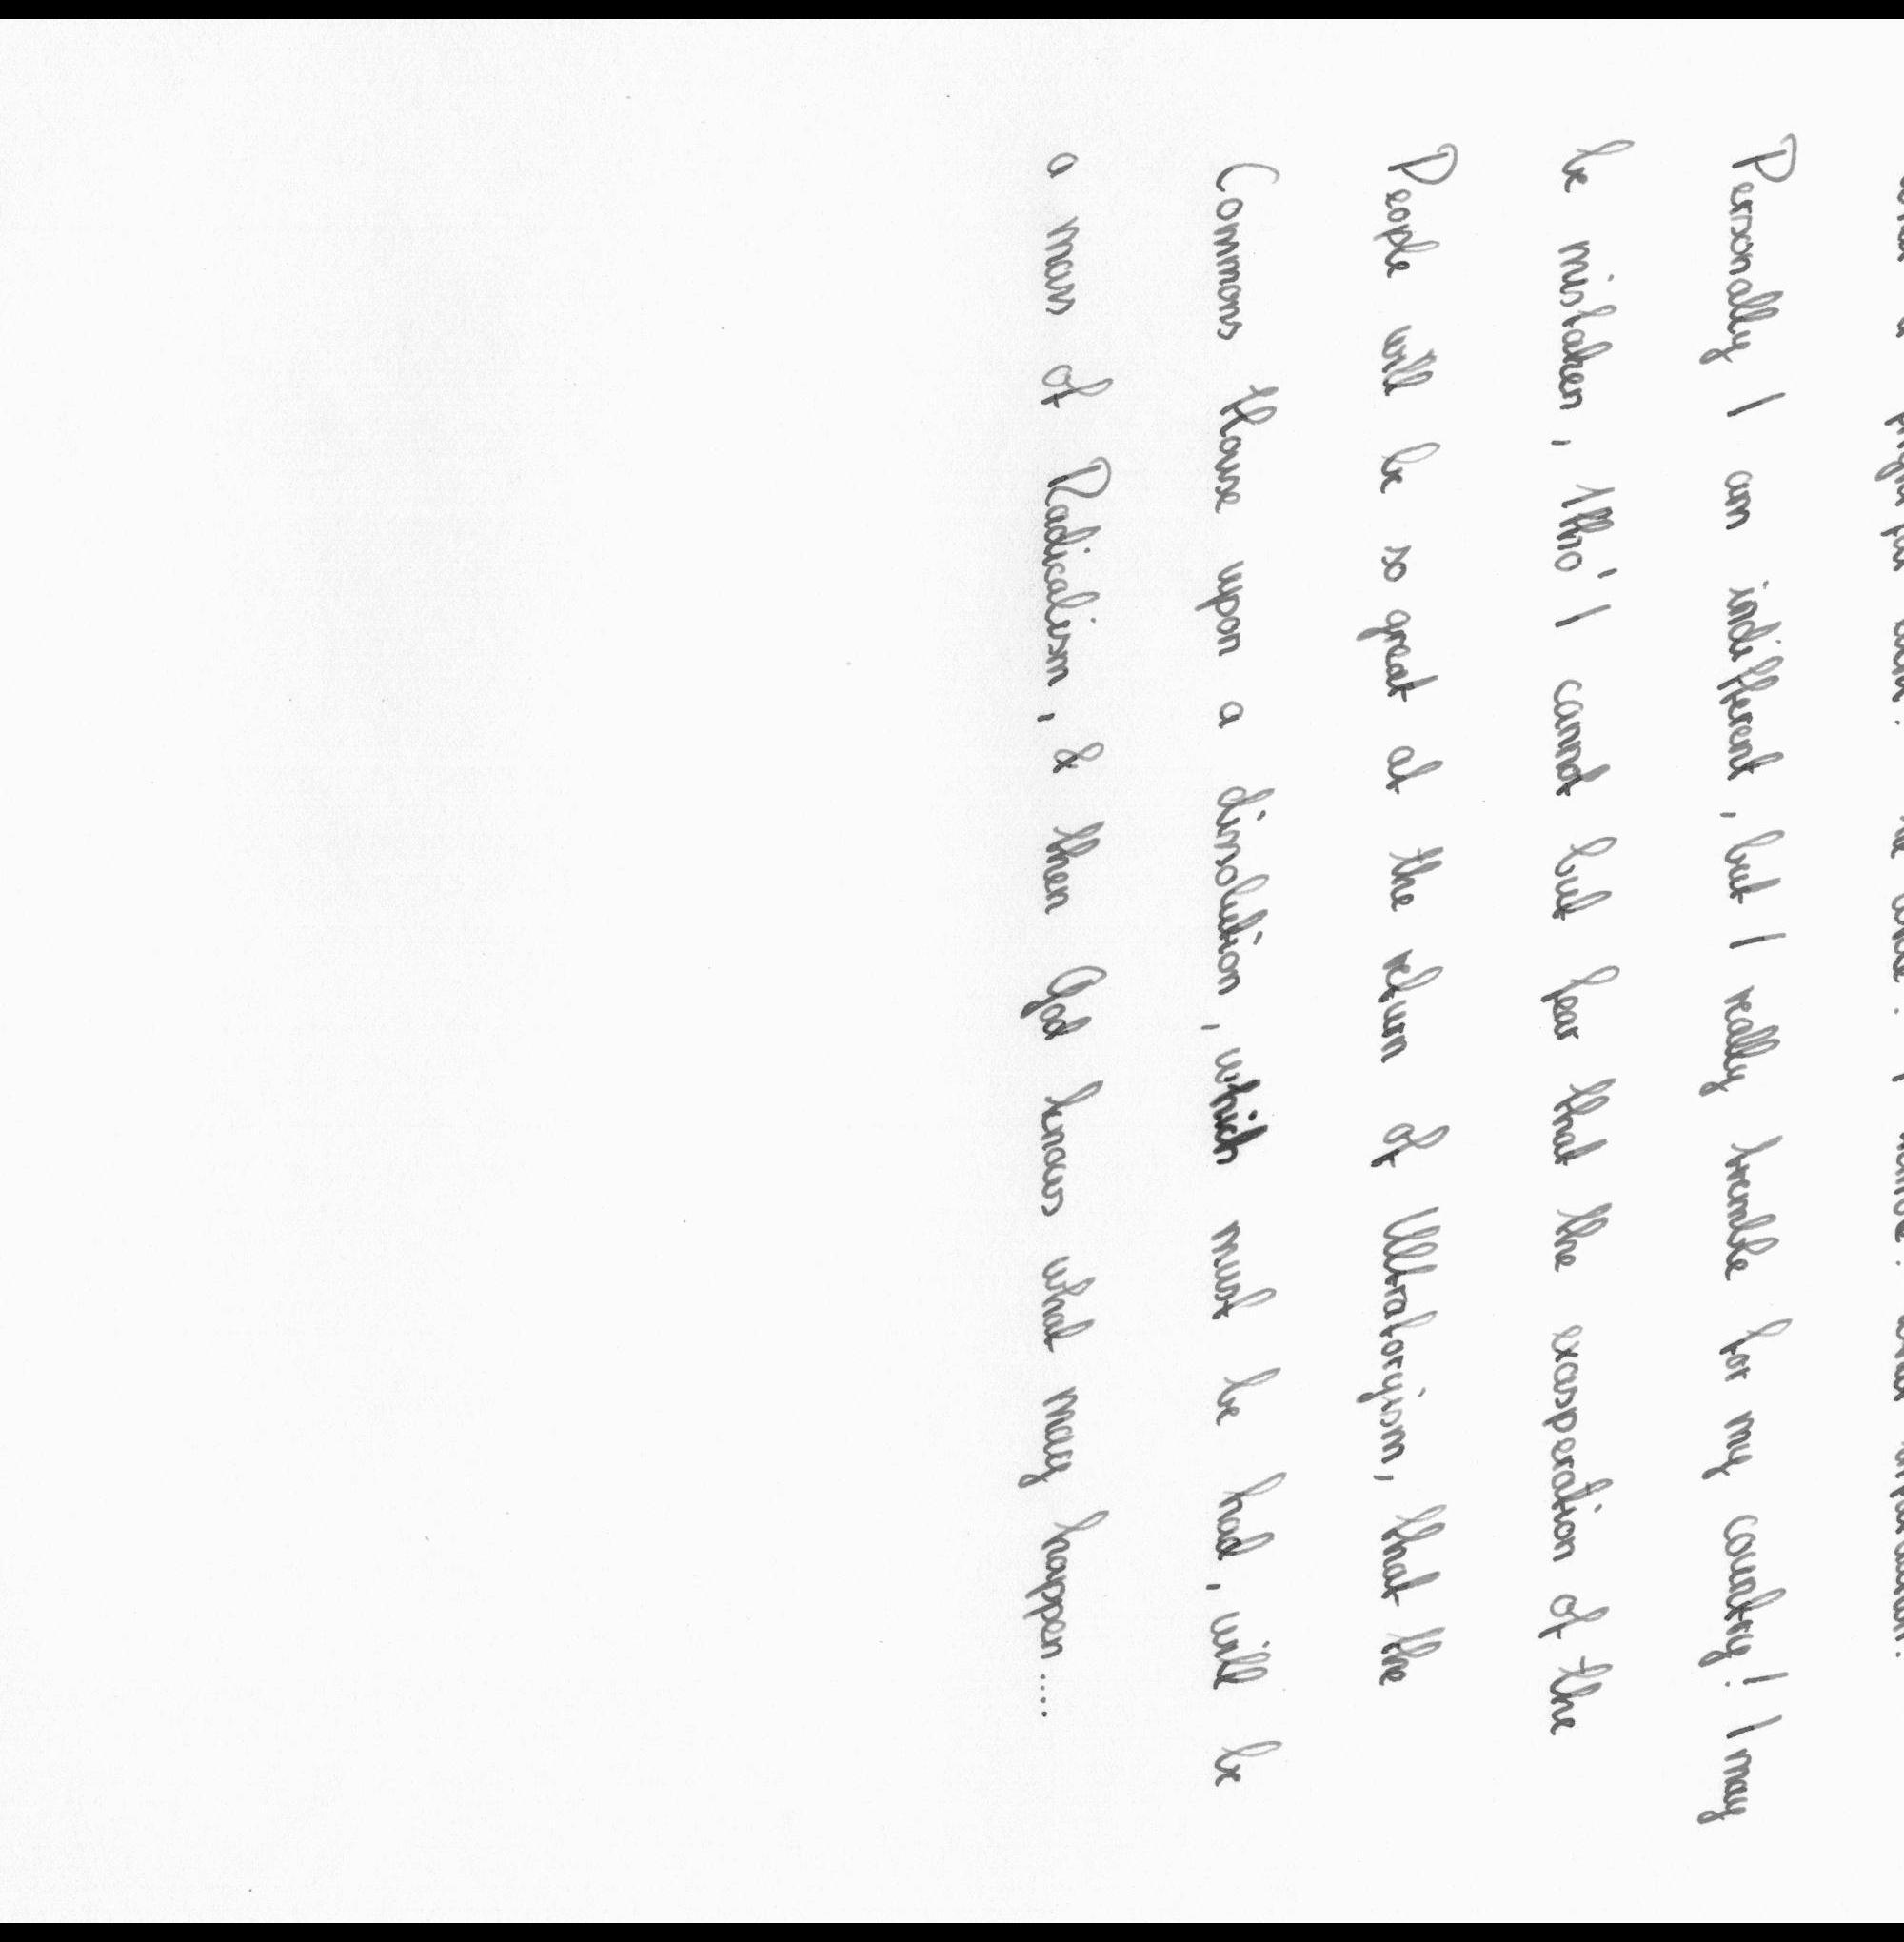 Personally I am indifferent, but I really tremble for my country! I may
be mistaken, tho' I cannot but fear that the exasperation of the
People will be so great at the return of Ultratoryism, that the
Commons House upon a dissolution, which must be had, will be
a mass of Radicalism, & then God knows what may happen....